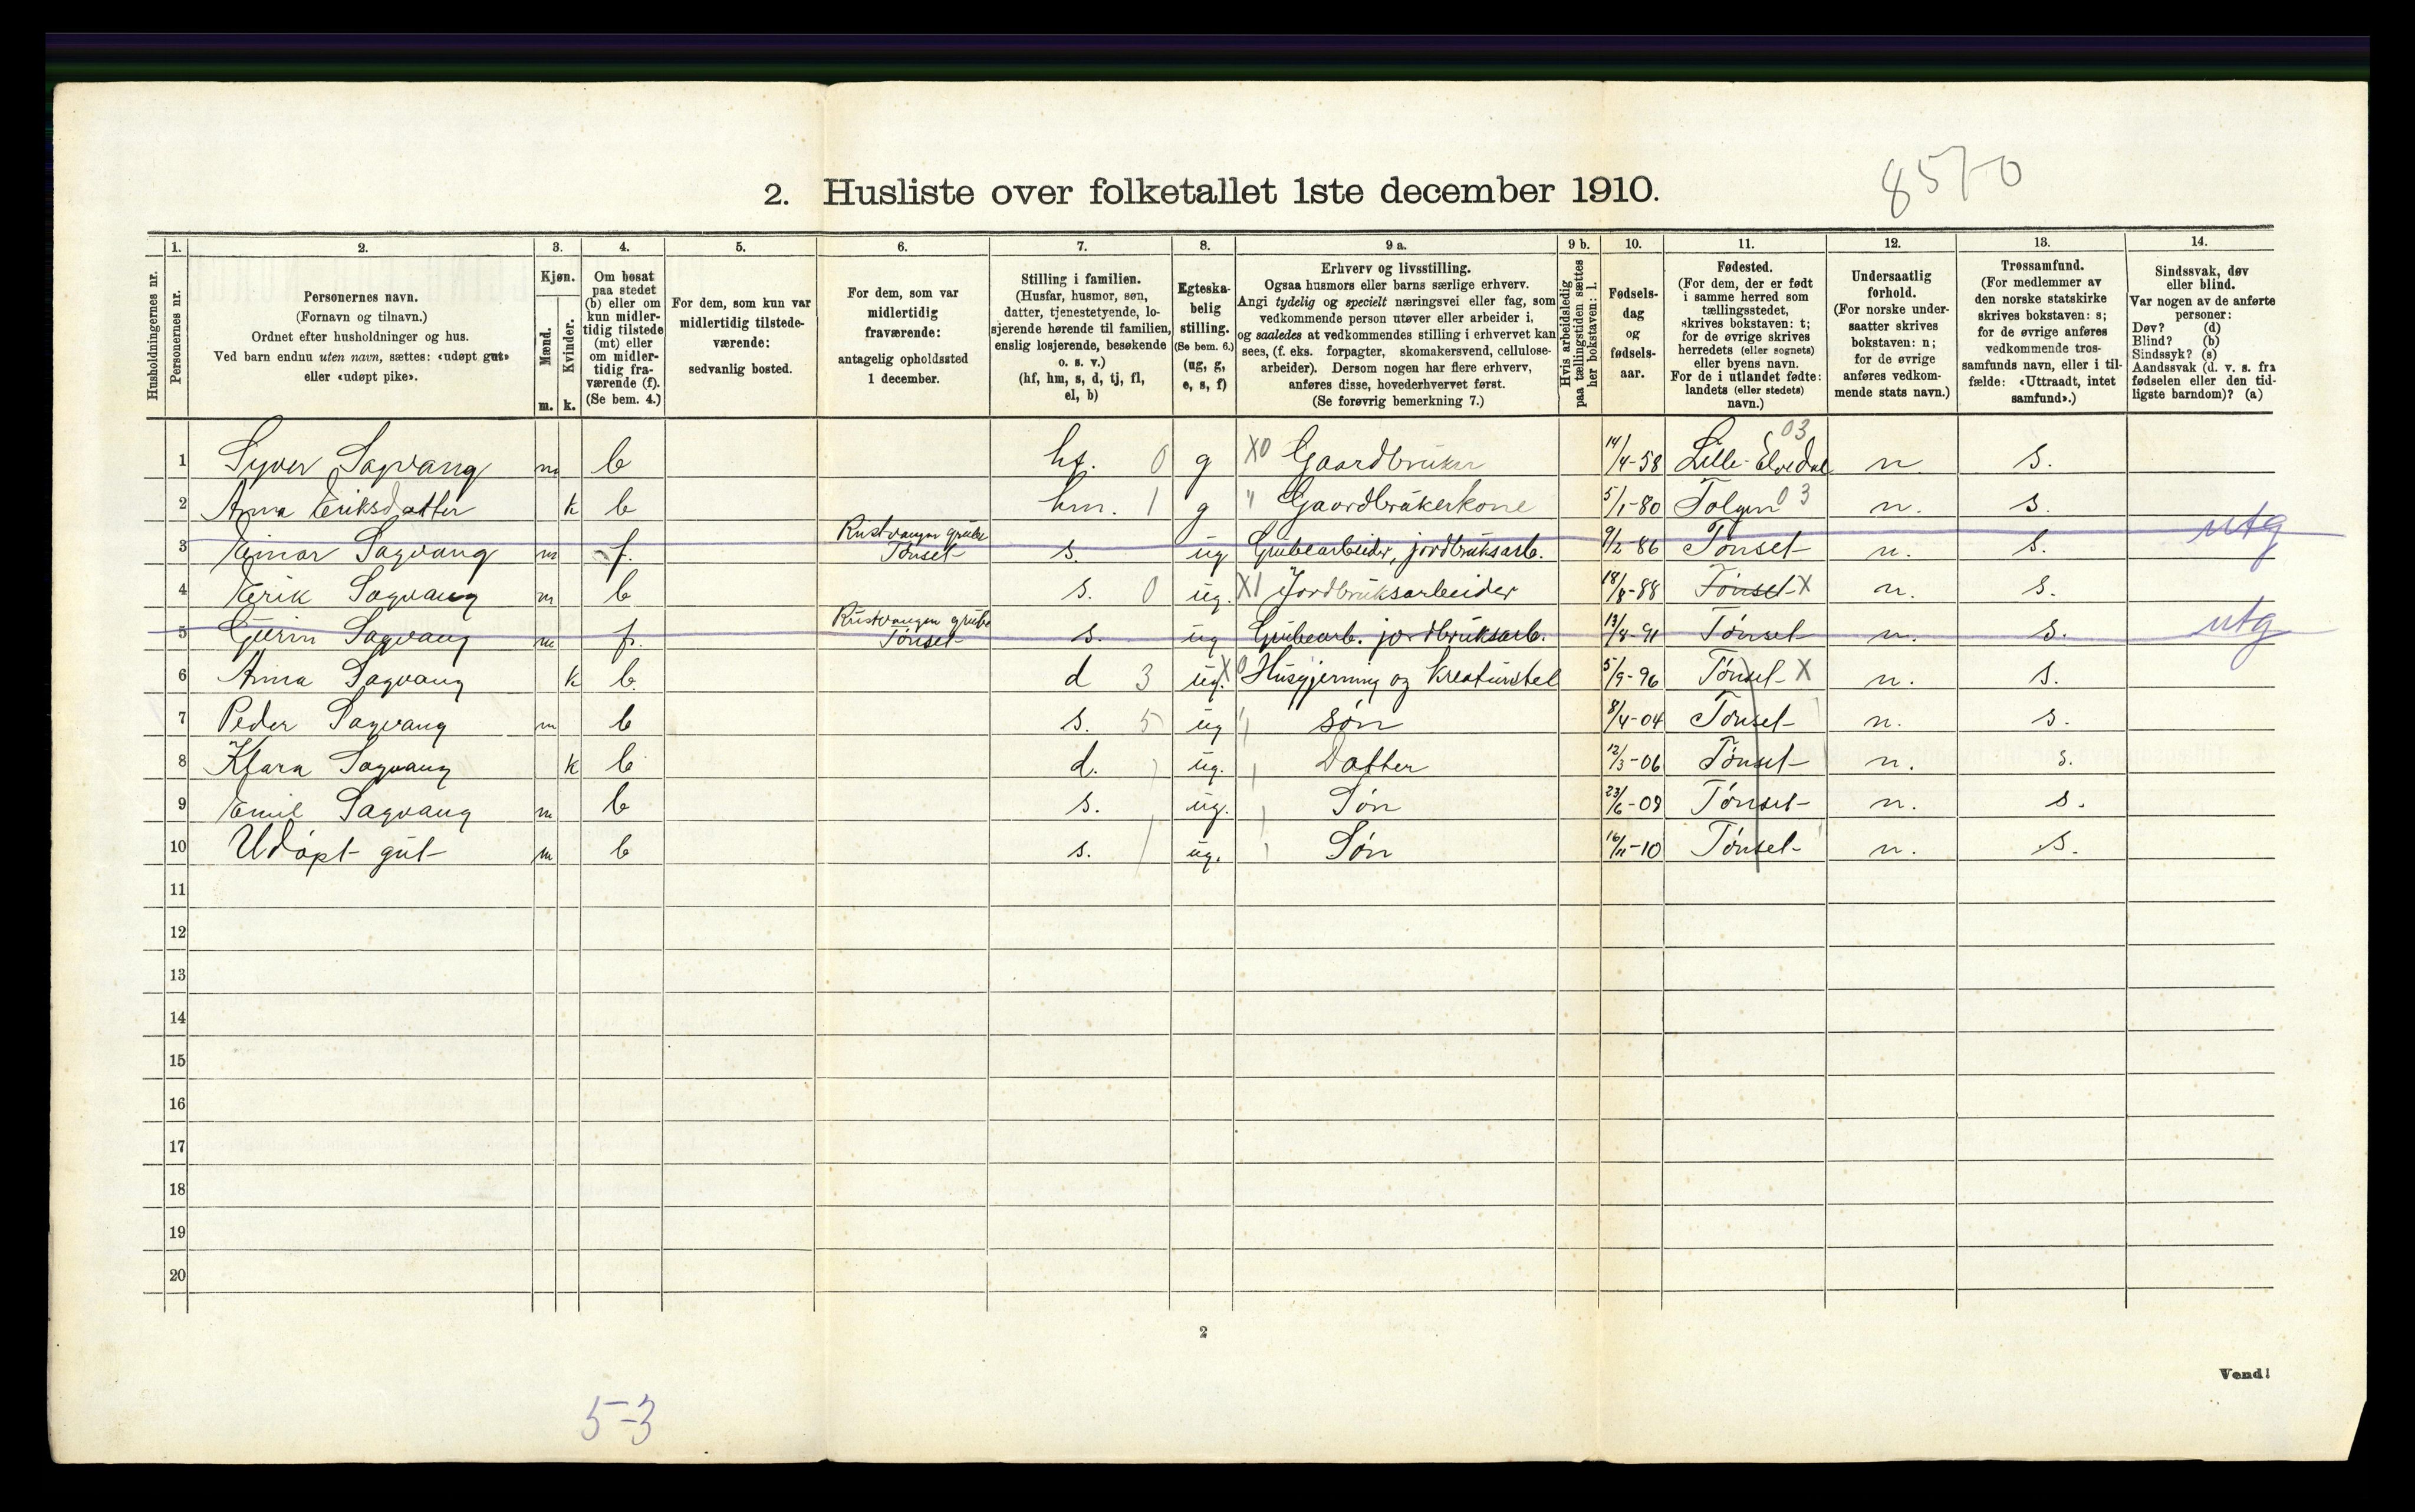 8570
2. Husliste over folketallet 1ste december 1910.
Husholdningernes nr.
1. Personernes nr.
2. Personernes navn. (Fornavn og tilnavn.) Ordnet efter husholdninger og hus. Ved barn endnu uten navn, sættes: «udøpt gut» eller «udøpt pike».
3. Kjøn. Mænd. m. Kvinder. k.
4. Om bosat paa stedet (b) eller om kun midlertidig tilstede (mt) eller om midlertidig fraværende (f). (Se bem. 4.)
5. For dem, som kun var midlertidig tilstedeværende: sedvanlig bosted.
6. For dem, som var midlertidig fraværende: antagelig opholdssted 1 december.
7. Stilling i familien. (Husfar, husmor, søn, datter, tjenestetyende, losjerende hørende til familien, enslig losjerende, besøkende o. s. v.) (hf, hm, s, d, tj, fl, el, b)
8. Egteskabelig stilling. (Se bem. 6.) (ug, g, e, s, f)
9 a. Erhverv og livsstilling. Ogsaa husmors eller barns særlige erhverv. Angi tydelig og specielt næringsvei eller fag, som vedkommende person utøver eller arbeider i, og saaledes at vedkommendes stilling i erhvervet kan sees, (f. eks. forpagter, skomakersvend, cellulosearbeider). Dersom nogen har flere erhverv, anføres disse, hovederhvervet først. (Se forøvrig bemerkning 7.)
9 b. Hvis arbeidsledig paa tællingstiden sættes her bokstaven: l.
10. Fødselsdag og fødselsaar.
11. Fødested. (For dem, der er født i samme herred som tællingsstedet, skrives bokstaven: t; for de øvrige skrives herredets (eller sognets) eller byens navn. For de i utlandet fødte: landets (eller stedets) navn.)
12. Undersaatlig forhold. (For norske undersaatter skrives bokstaven: n; for de øvrige anføres vedkommende stats navn.)
13. Trossamfund. (For medlemmer av den norske statskirke skrives bokstaven: s; for de øvrige anføres vedkommende trossamfunds navn, eller i tilfælde: «Uttraadt, intet samfund».)
14. Sindssvak, døv eller blind. Var nogen av de anførte personer: Døv? (d) Blind? (b) Sindssyk? (s) Aandssvak (d. v. s. fra fødselen eller den tidligste barndom)? (a)
1 Syver Sagvang m b hf. 0 g X0 Gaardbruker 14/4-58 Lille-Elvedal 03 n. s.
2 Anna Eriksdatter k b hm. 1 g " Gaardbrukerkone 5/1-80 Tolgen 03 n. s.
3 Einar Sagvang m f. Rustvangen grube Tønset s. ug Grubearbeider, jordbruksarb. 9/2-86 Tønset n. s. utg
4 Erik Sagvang m b s. 0 ug. X1 Jordbruksarbeider 18/8-88 Tønset X n. s.
5 Gurin Sagvang m f. Rustvangen grube Tønset s. ug Grubearb. jordbruksarb. 13/8-91 Tønset n. s. utg
6 Anna Sagvang k b. d 3 ug. X0 Husgjerning og kreaturstel 5/9-96 Tønset X n. s.
7 Peder Sagvang m b s. 5 ug " søn 8/4-04 Tønset n. s.
8 Klara Sagvang k b d. ug. Datter 12/3-06 Tønset n. s.
9 Emil Sagvang m b s. ug. Søn 23/6-09 Tønset n. s.
10 Udøpt gut m b s. ug. Søn 16/11-10 Tønset n. s.
11
12
13
14
15
16
17
18
19
20
2
Vend!
5-3